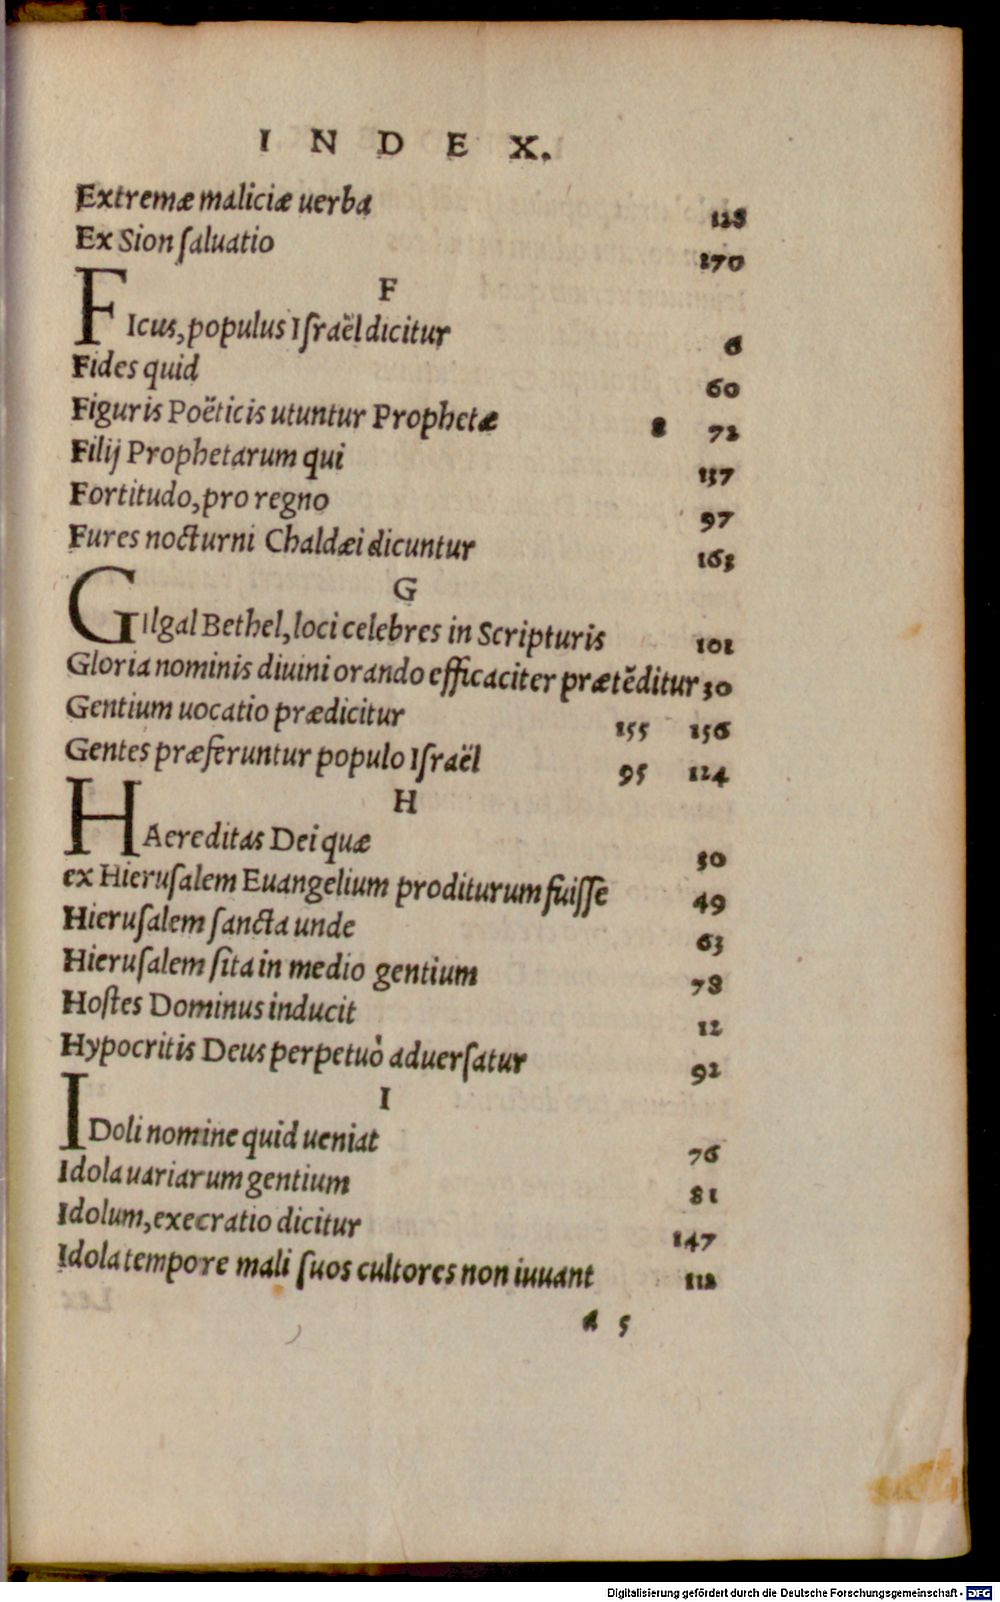 INDEX.
Extremæ maliciæ uerba 128
Ex Sion ſaluatio 170
F
FIcus, populus Iſraël dicitur 6
Fides quid 60
Figuris Poëticis utuntur Prophetæ 8 72
Filij Prophetarum qui 137
Fortitudo, pro regno 97
Fures nocturni Chaldæi dicuntur 163
G
GIlgal Bethel, loci celebres in Scripturis 101
Gloria nominis diuini orando efficaciter prætẽditur 30
Gentium uocatio prædicitur 155 156
Gentes præferuntur populo Iſraël 95 124
H
HAereditas Dei quæ 50
ex Hieruſalem Euangelium proditurum fuiſſe 49
Hieruſalem ſancta unde 63
Hieruſalem ſita in medio gentium 78
Hoſtes Dominus inducit 12
Hypocritis Deus perpetuò aduerſatur 92
I
IDoli nomine quid ueniat 76
Idola uariarum gentium 81
Idolum, execratio dicitur 147
Idola tempore mali ſuos cultores non iuuant 112
A 5
Digitalisierung gefördert durch die Deutsche Forschungsgemeinschaft - DFG